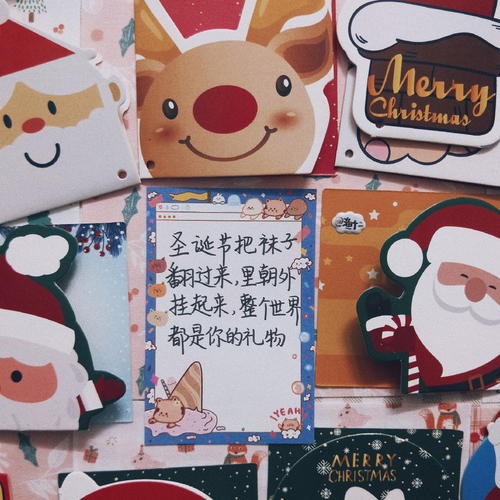 Merry
Christmas
圣诞节把袜子
翻过来,里朝外
挂起来,整个世界
都是你的礼物
YEAH
MERRY
CHRISTMAS